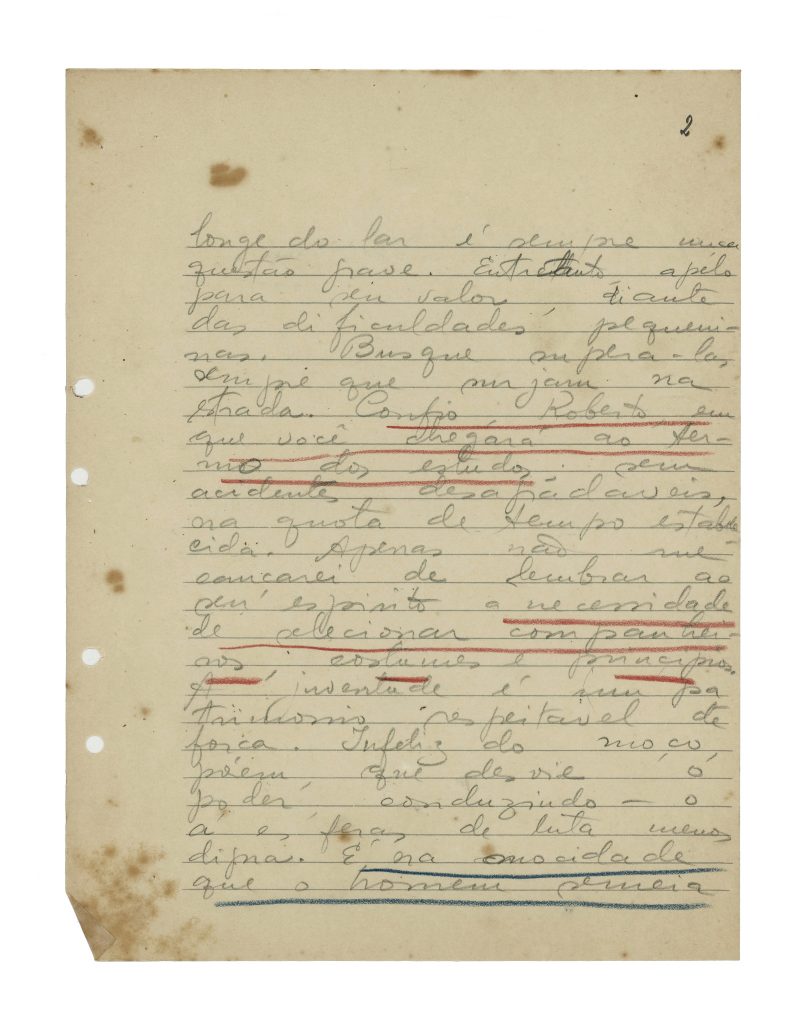 2
longe do lar é sempre uma
questão grave. Entretanto apélo
para seu valor, diante
das dificuldades pequeni-
nas. Busque supera-las,
sempre que surjam na
estrada. Confio, Roberto, em
que você chegará ao ter-
mo dos estudos sem
acidentes desagradaveis,
na quota de tempo estabele-
cida. Apenas não me
cançarei de lembrar ao
seu espirito a necessidade
de selecionar companhei-
ros, costumes e principios.
A juventude é um pa
trimonio respeitavel de
força. Infeliz do moço,
porém, que desvie o
poder conduzindo-o
a esferas de luta menos
digna. É na mocidade
que o homem semeia